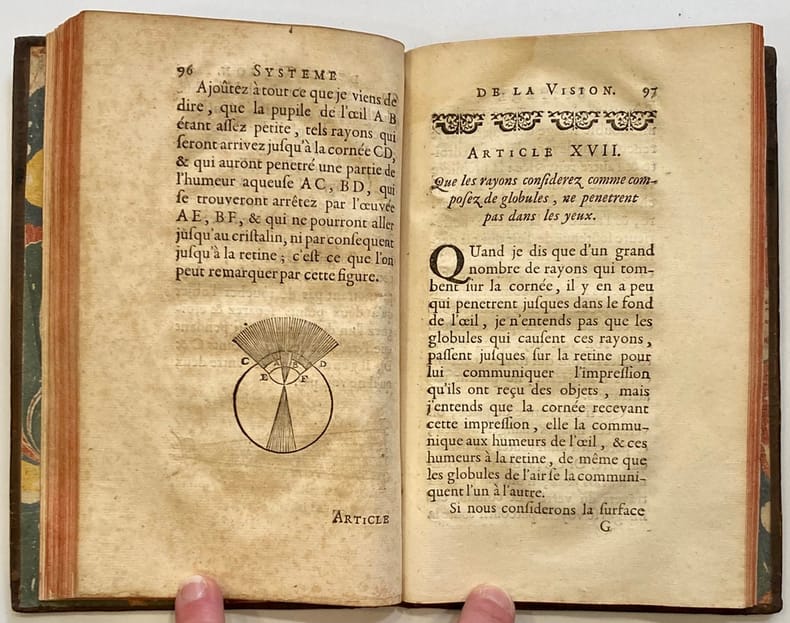 96 SYSTEME
Ajoûtez à tout ce que je viens de
dire, que la pupile de l'œil A B
étant assez petite, tels rayons qui
seront arrivez jusqu'à la cornée CD,
& qui auront penetré une partie de
l'humeur aqueuse AC, BD, qui
se trouveront arrêtez par l'œuvée
AE, BF, & qui ne pourront aller
jusqu'au cristalin, ni par consequent
jusqu'à la retine ; c'est ce que l'on
peut remarquer par cette figure.
C A B D
E F
ARTICLE
DE LA VISION. 97
ARTICLE XVII.
Que les rayons considerez comme com-
posez de globules, ne penetrent
pas dans les yeux.
Quand je dis que d'un grand
nombre de rayons qui tom-
bent sur la cornée, il y en a peu
qui penetrent jusques dans le fond
de l'œil, je n'entends pas que les
globules qui causent ces rayons,
passent jusques sur la retine pour
lui communiquer l'impression
qu'ils ont reçu des objets, mais
j'entends que la cornée recevant
cette impression, elle la commu-
nique aux humeurs de l'œil, & ces
humeurs à la retine, de même que
les globules de l'air se la communi-
quent l'un à l'autre.
Si nous considerons la surface
G